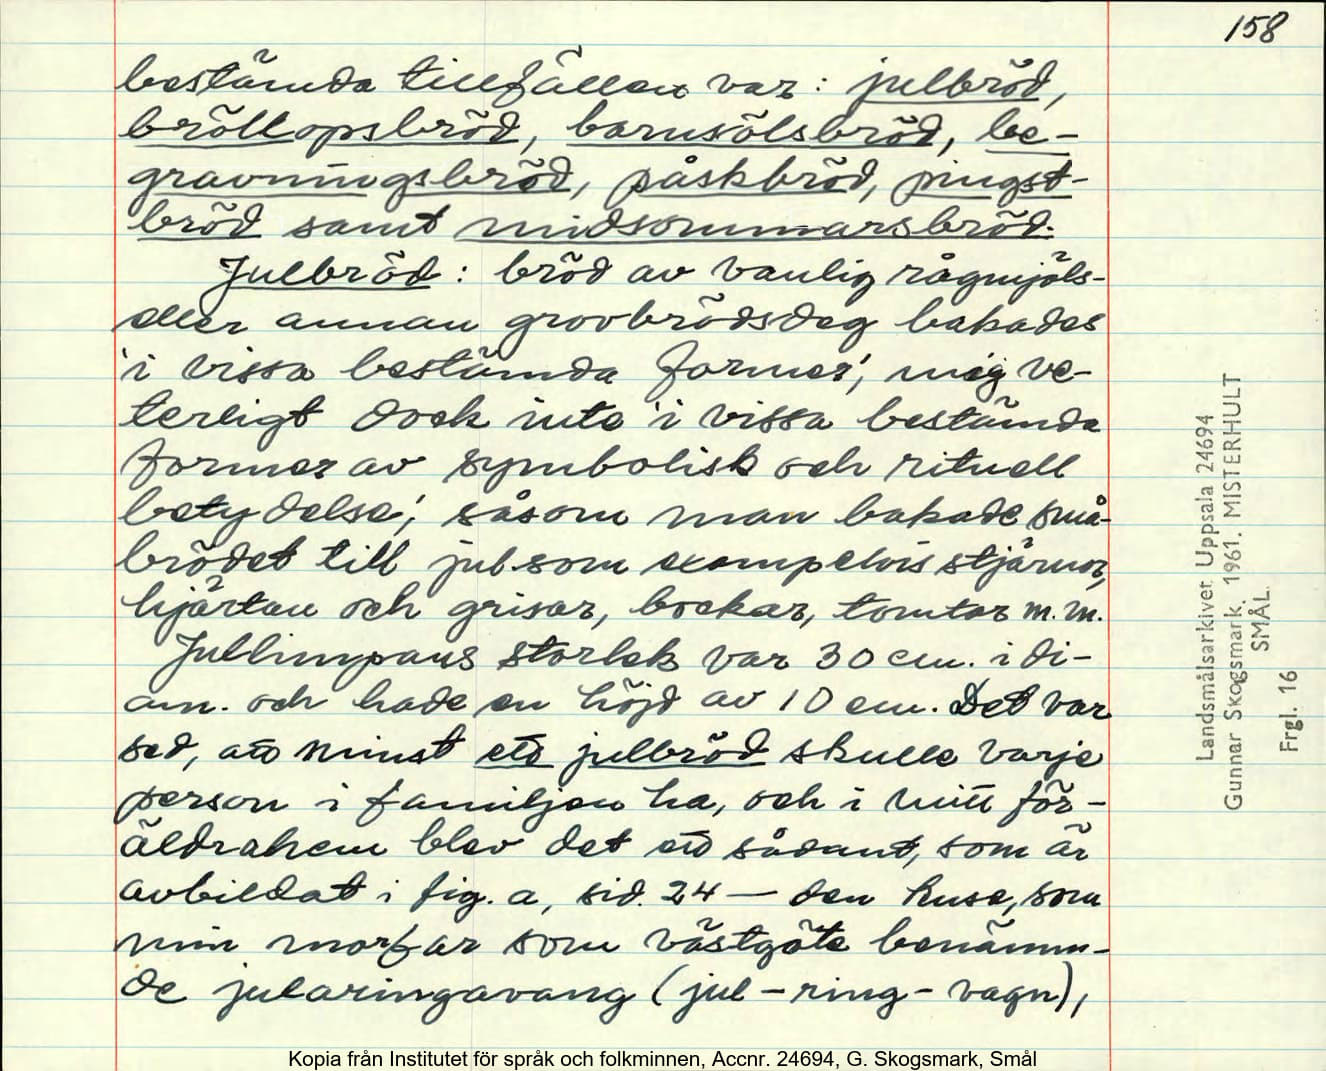 158
bestämda tillfällen var: julbröd,
bröllopsbröd, barnsölsbröd, be-
gravningsbröd, påskbröd, pingst-
bröd samt midsommarsbröd.
Julbröd: bröd av vanlig rågmjöls-
eller annan grovbrödsdeg bakades
'i vissa bestämda former', mig ve-
terligt dock inte 'i vissa bestämda
former av symbolisk och rituell
betydelse', såsom man bakade små-
brödet till jul som exempelvis stjärnor,
hjärtan och grisar, bockar, tomtar m.m.
Jullimpans storlek var 30 cm. i di-
am. och hade en höjd av 10 cm. Det var
sed, att minst ett julbröd skulle varje
person i familjen ha, och i mitt för-
äldrahem blev det ett sådant, som är
avbildat i fig. a, sid. 24 — den kuse, som
min morfar som västgöte benämn-
de jularingavang (jul-ring-vagn),
Landsmålsarkivet Uppsala 24694
Gunnar Skogsmark. 1961. MISTERHULT
SMÅL.
Frgl. 16
Kopia från Institutet för språk och folkminnen, Accnr. 24694, G. Skogsmark, Smål